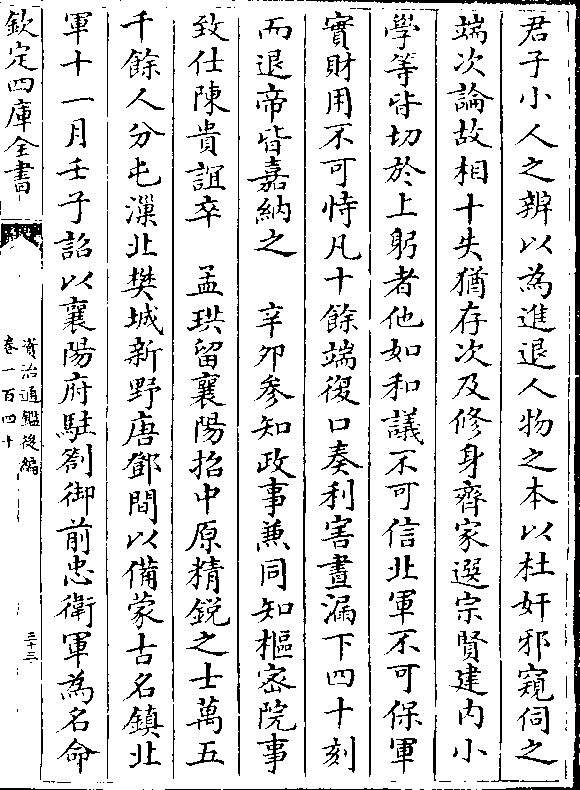 君子小人之辨以為進退人物之本以杜奸邪窺伺之
端次論故相十失猶存次及修身齊家選宗賢建内小
學等皆切於上躬者他如和議不可信北軍不可保軍
實財用不可恃凡十餘端復口奏利害晝漏下四十刻
而退帝皆嘉納之　辛卯參知政事兼同知樞密院事
致仕陳貴誼卒　孟珙留襄陽招中原精鋭之士萬五
千餘人分屯漅北樊城新野唐鄧間以備蒙古名鎮北
軍十一月壬子詔以襄陽府駐劄御前忠衛軍為名命
欽定四庫全書
資治通鑑後編
卷一百四十
三十三